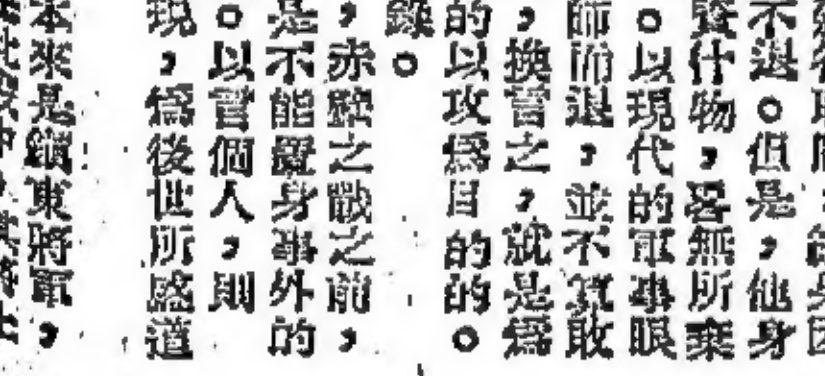 不退。但是，他身
什物，畧無所棄
。以現代的軍事眼
師而退，並不算敗
，換言之，就是爲
的以攻爲目的的。
錄。
，赤壁之戰之前，
是不能置身事外的
。以言個人，則
現，爲後世所盛道
本來是鎮東將軍，